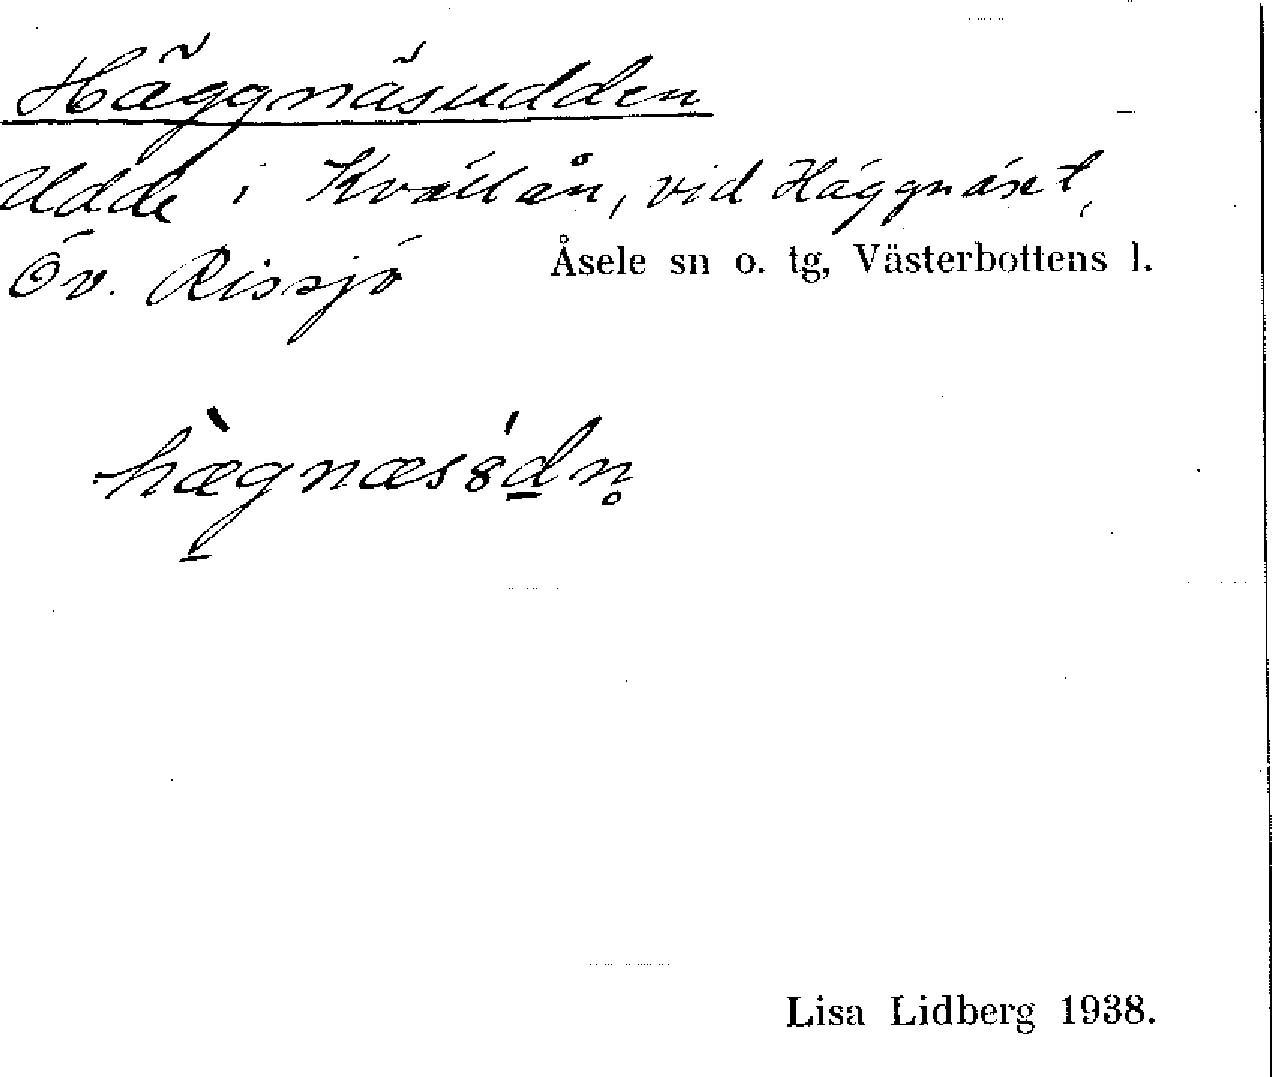 Häggnäsudden
Udde i Kvällån, vid Häggnäset,
Öv. Rissjö Åsele sn o. tg, Västerbottens l.
hæ̀g̱næs8́ḏn̥
Lisa Lidberg 1938.